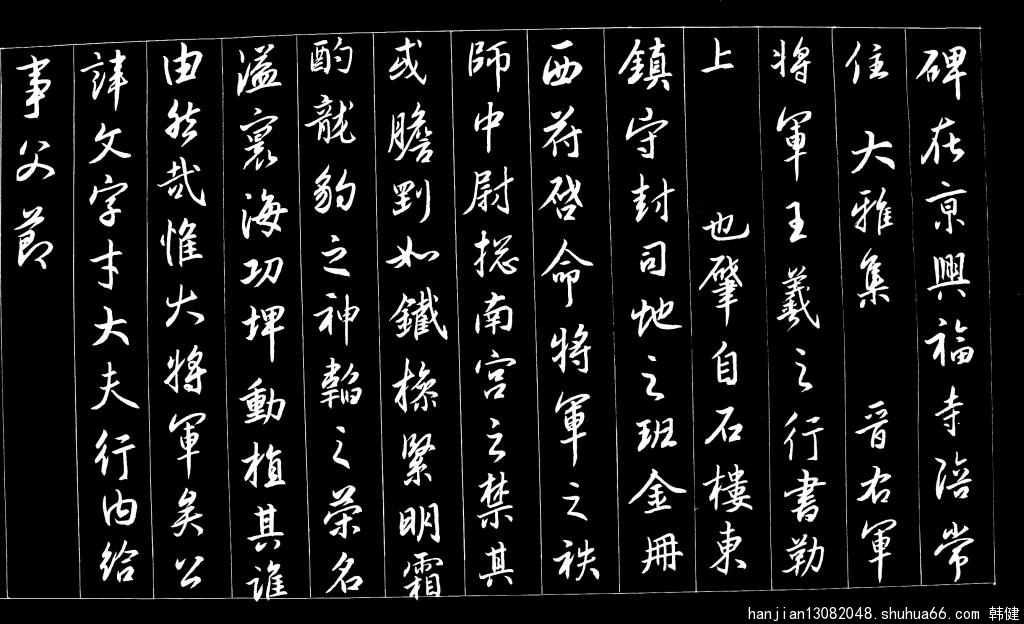 碑在京興福寺陪常
住 大雅集 晉右軍
將軍王羲之行書勒
上 也肇自石樓東
鎮守封司地之班金冊
西符啓命將軍之袟
師中尉揔南宮之禁其
或膽劉如鐵操緊明霜
酌龍豹之神韜之榮名
溢寰海功坤動植其誰
由然哉惟大將軍矣公
諱文字才大夫行內給
事父節
hanjian13082048.shuhua66.com 韩健